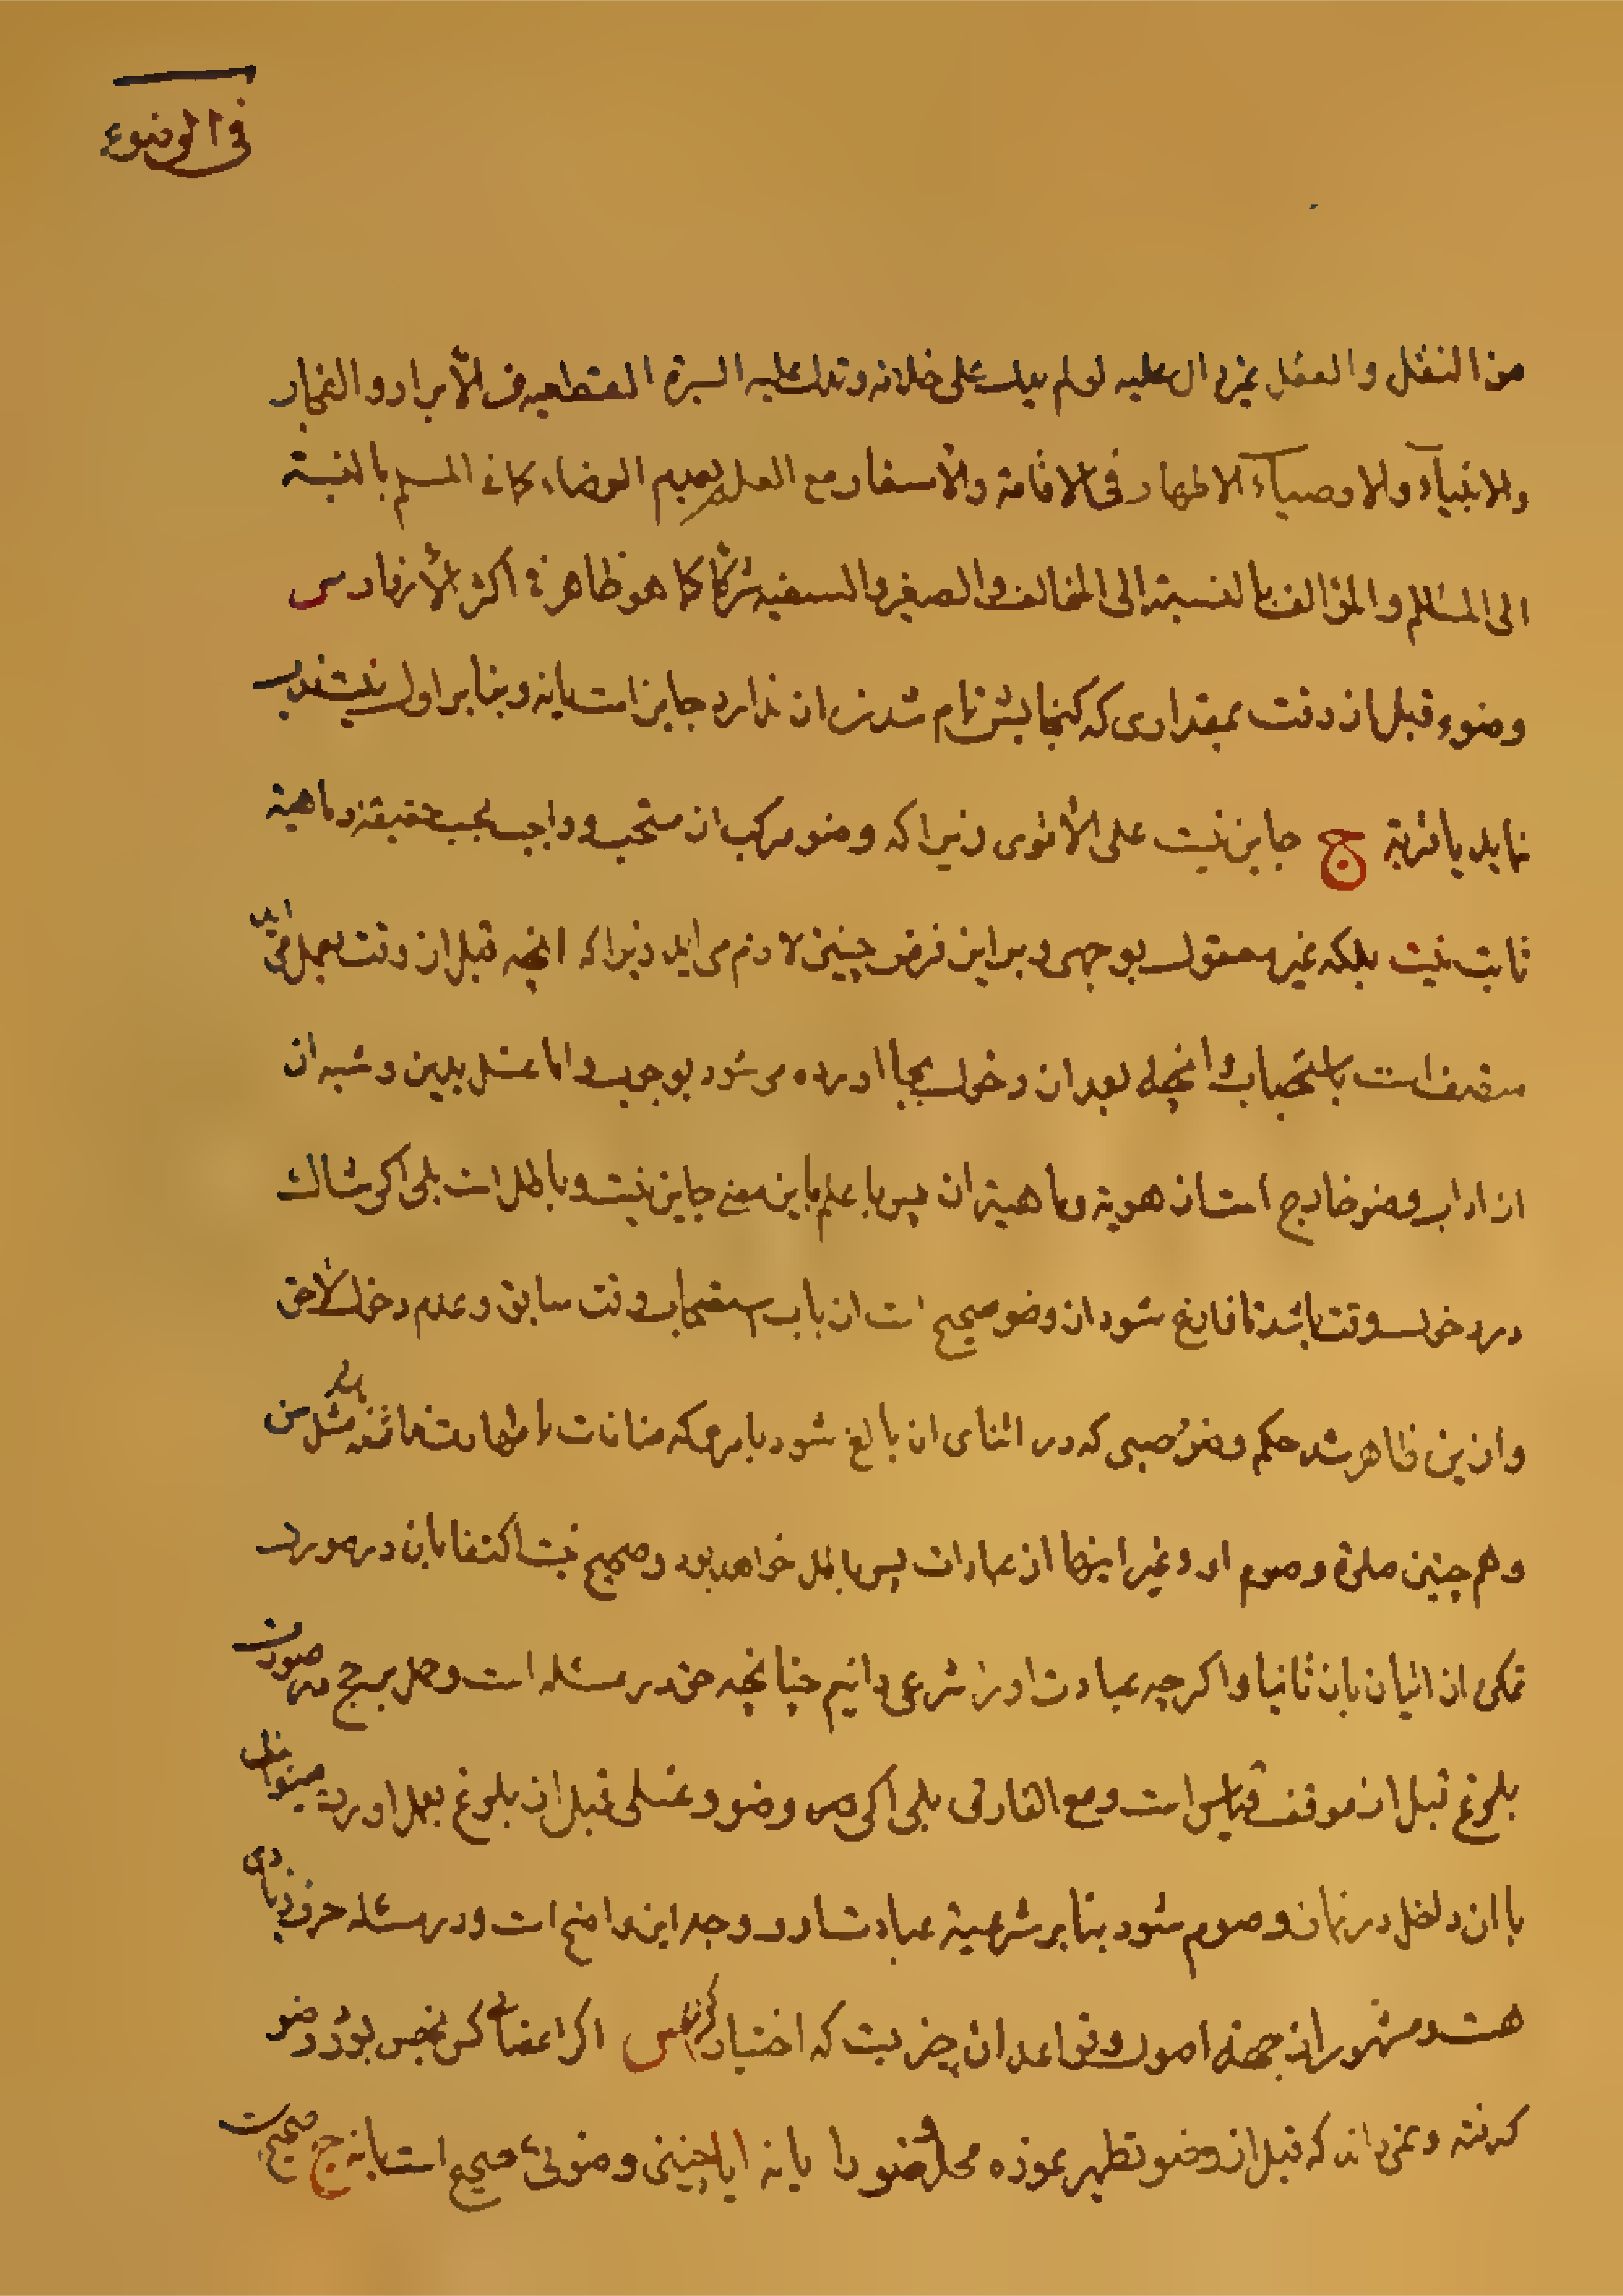 فی الوضوء
من النقل والعقل غیر دال علیه لو لم یدل علی خلافه وتدل علیه السیرة القطعیه فی الأبرار والفجار
والانبیآء والاوصیآء الاطهار فی الاقامة والأسفار مع العلم بعدم الرضاء کما فی المسلم بالنسبة
الی المسلم والمؤالف بالنسبة الی المخالف والصغیر والسفیه شرکا کما هو ظاهر فی اکثر الأزفاد س
وضوء قبل از وقت بمقداری که کنجایش تمام شدنرا ندارد جایز است یا نه وبنابر اول نیت ندب
نماید یا قربة ج جایز نیست علی الأقوی زیرا که وضو مرکب از مستحب و واجب بحسب حقیقة وماهیة
ثابت نیست بلکه غیر معقول بوجهی وبر این فرض چنین لازم می اید زیرا که انچه قبل از وقت بعمل می اید
متصف است باستحباب وانچه بعد از دخول بجا اورده می شود بوجوب واما غسل یدین وشبه ان
از اداب وضو خارج است از هویة وماهیة ان پس با علم باین معنی جایز نیست و باطل است بلی اکر شاک
در دخول وقت باشد تا فارغ شود از وضو صحیح است از باب استصحاب وقت سابق وعدم دخول لاحق
وازین ظاهر شد حکم وضوء صبی که در اثنای ان بالغ شود بامری که منافات با طهارت نداشته باشد مثل سن
وهم چنین صلوة وصوم او وغیر اینها از عبادات پس باطل خواهد بود وصحیح نیست اکتفا بان در صورت
تمکن از اتیان بان ثانیا واکرچه عبادت او را شرعی دانیم چنانچه حق در مسئله است وحمل بر حج در صورت
بلوغ قبل از موقف قیاس است ومع الفارق بلی اکر صبی وضو وغسلی قبل از بلوغ بعمل اورده میتواند
با ان داخل در نماز وصوم شود بنابر شرعیة عبادت او و وجه این واضح است ودر مسئله حرف زیادی
هست ومشهور از جهة اصول وقواعد ان چیزیست که اختیار کردیم س اکر اعضای کسی نجس بود و وضو
کرفته ونمی داند که قبل از وضو تطهیر نموده محل وضو را یا نه ایا چنین وضوئی صحیح است یا نه ج صحیح است